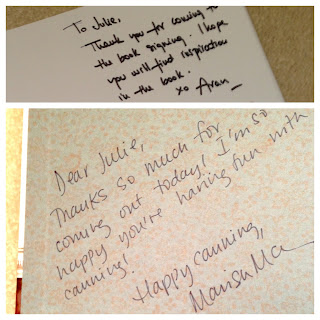 To Julie,
Thank you for coming to
the book signing. I hope
you will find inspiration
in the book.
xo Aran
Dear Julie,
Thanks so much for
coming out today! I'm so
happy you're having fun with
canning!
Happy canning,
Marisa Mc